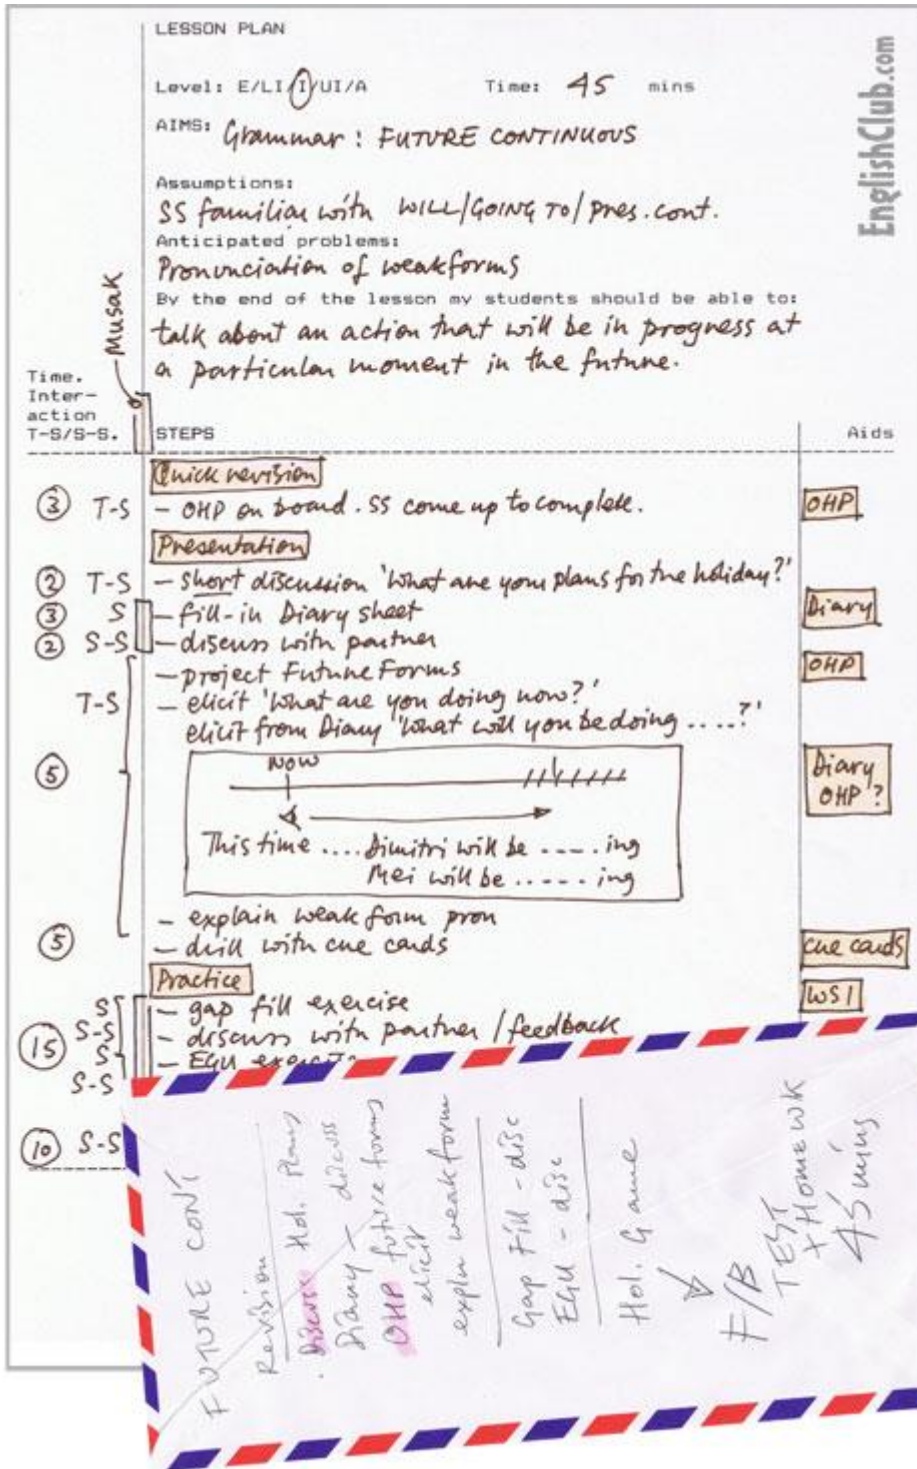 LESSON PLAN
EnglishClub.com
Level: E/LI/I/UI/A Time: 45 mins
AIMS: Grammar: FUTURE CONTINUOUS
Assumptions:
SS familiar with WILL/GOING TO/pres. cont.
Anticipated problems:
Pronunciation of weakforms
By the end of the lesson my students should be able to:
talk about an action that will be in progress at
a particular moment in the future.
Musak
Time.
Inter-
action
T-S/S-S. STEPS Aids
Quick revision
3 T-S - OHP on board. SS come up to complete. OHP
Presentation
2 T-S - short discussion 'What are your plans for the holiday?'
3 S - fill-in Diary sheet Diary
2 S-S - discuss with partner
- project Future Forms OHP
T-S - elicit 'What are you doing now?'
elicit from Diary 'What will you be doing ....?'
5
NOW
Diary
OHP ?
This time .... Dimitri will be ..... ing
Mei will be ...... ing
- explain weak form pron
5 - drill with cue cards cue cards
Practice
S - gap fill exercise WS1
S-S - discuss with partner / feedback
15 S - EGU
S-S
10 S-S
FUTURE CONT
Revision
Discuss Hol. Plans
Diary - discuss
OHP future forms
elicit
expln weak form
Gap Fill - disc
EGU - disc
Hol. Game
F/B
TEST
+ HOMEWK
45 mins